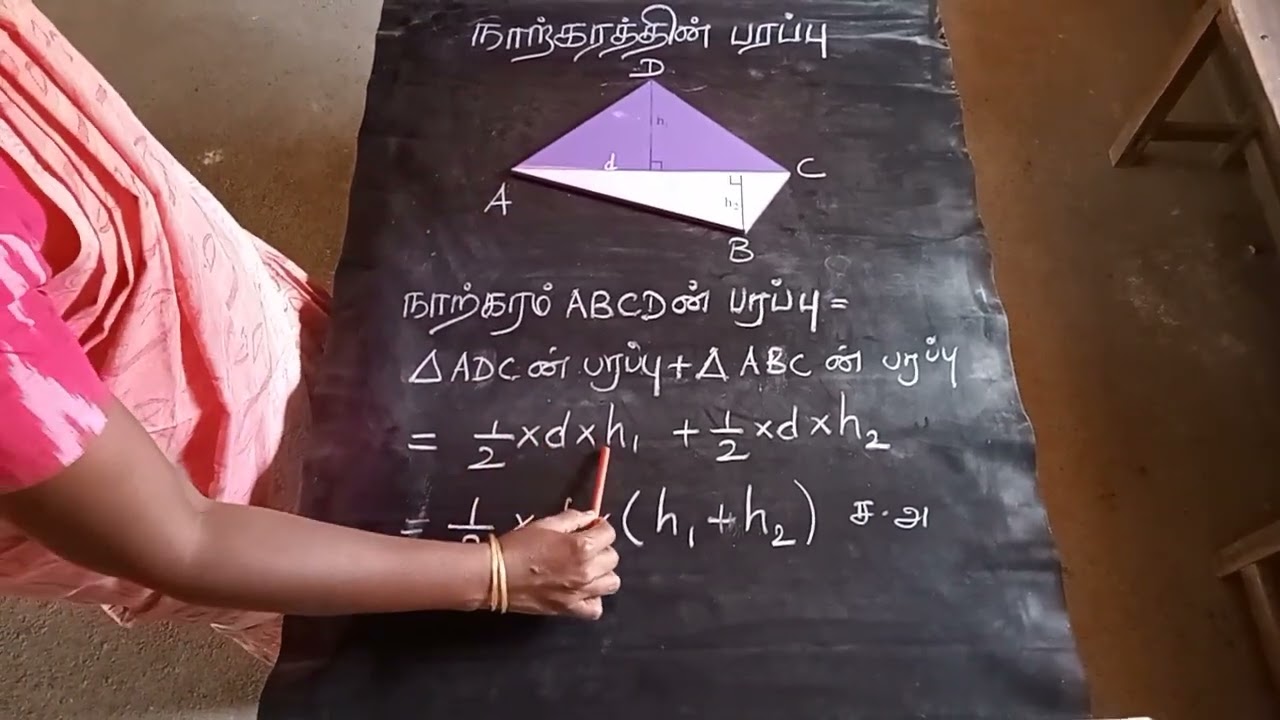 நாற்கரத்தின் பரப்பு
D
h₁
d
A
C
h₂
B
நாற்கரம் ABCD ன் பரப்பு =
△ ADC ன் பரப்பு + △ ABC ன் பரப்பு
= 1/2 × d × h₁ + 1/2 × d × h₂
= 1/2 × × (h₁ + h₂) ச.அ